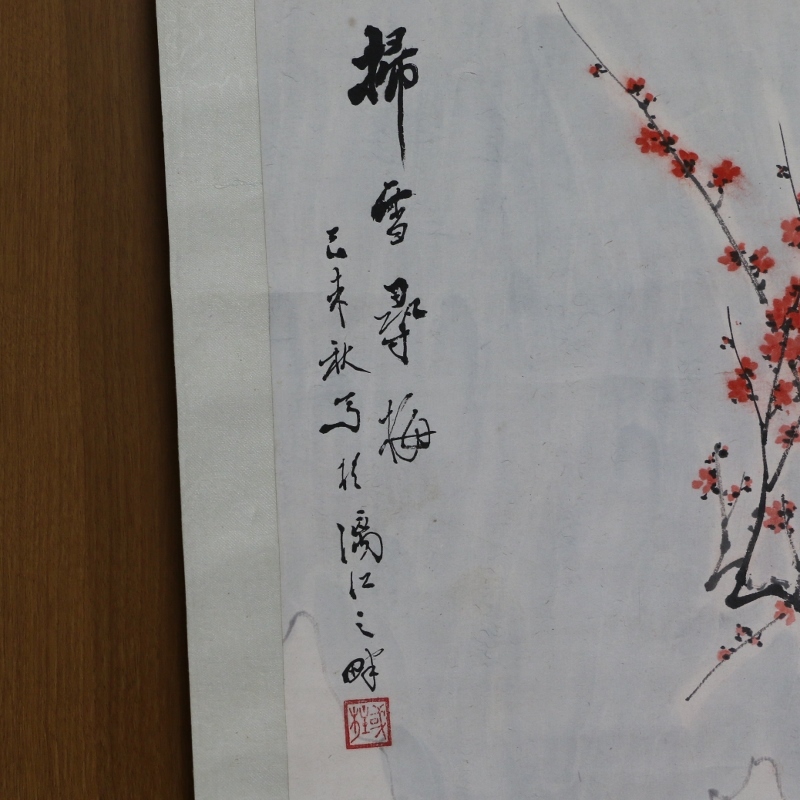 掃雪尋梅
己未秋写於漓江之畔